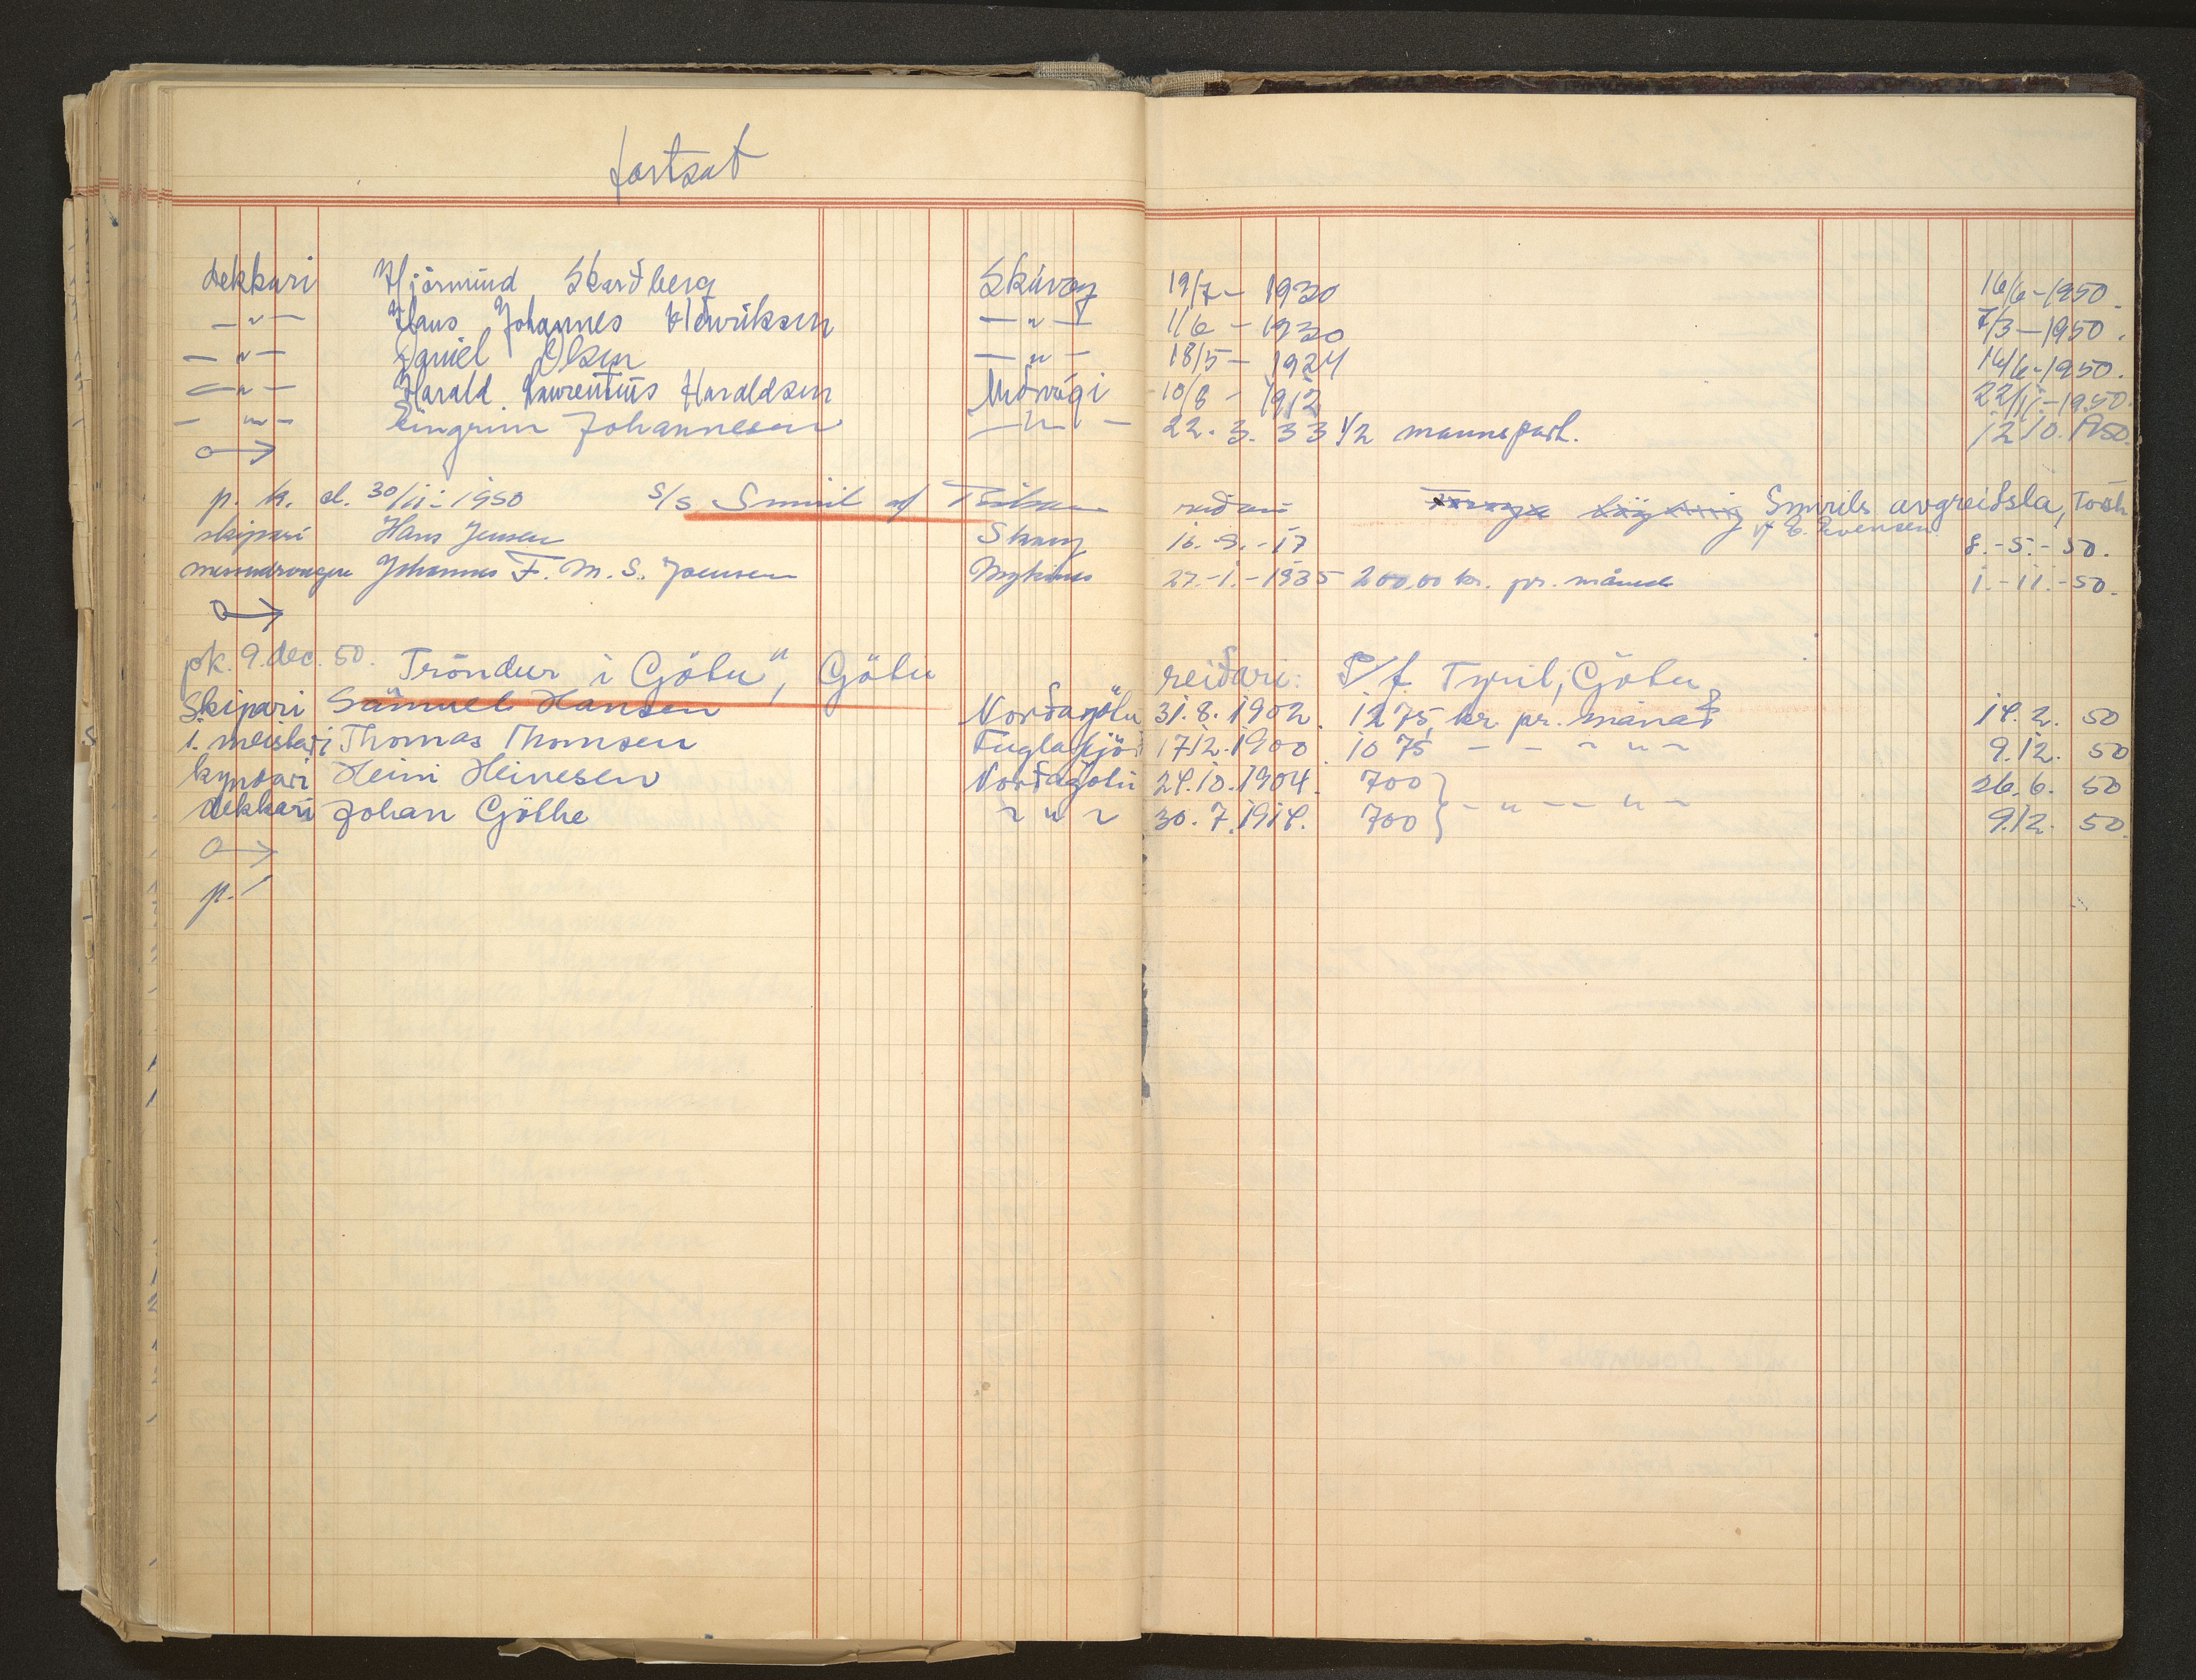 fortsat
dekkari Hjörmund Skarðberg Skúvoy 19/7 - 1930 16/6 - 1950.
— " — Hans Johannes Henriksen — " — 1/6 - 1930 7/3 - 1950.
— " — Daniel Olsen — " — 18/5 - 1924 14/6 - 1950.
— " — Harald Laurentius Haraldsen Miðvági 10/8 - 1912 22/11 - 1950.
— " — Johannesen — " — 22. 3. 33 1/2 mannspart. 12 10. 1950.
p. k. d. 30/11 - 1950 S/S Smiril af reiðari Smirils avgreiðsla, Tósh
v/ E. Evensen
skipari Hans Jensen 16. - 9. - 17 8. - 5. - 50.
messudrongur Johannes F. M. S. Joensen Mykines 27. - 1. - 1935 200,00 kr. pr. månað 1. - 11. - 50.
pk. 9. dec. 50. Tróndur í Gøtu", Gøtu reiðari: P/f. Tyril, Gøtu
Skipari Sámuel Hansen Norðagøtu 31. 8. 1902. 1275, kr. pr. mánað 14. 2. 50
1. meistari Thomas Thomsen Fuglafjör 17 12. 1900. 1075 — — " — 9. 12. 50
kyndari Heini Heinesen Norðagøtu 24. 10. 1904. 700 } — " — — " — 26. 6. 50
dekkari Johan Gøthe — " — 30. 7. 1914. 700 } 9. 12. 50.
p.